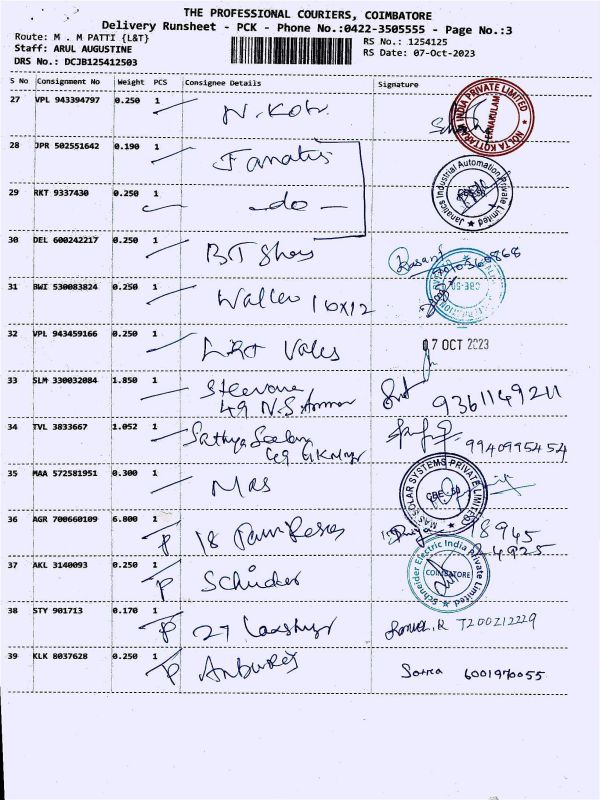 THE PROFESSIONAL COURIERS, COIMBATORE
Delivery Runsheet - PCK - Phone No.:0422-3505555 - Page No.:3
Route: M . M PATTI {L&T}
Staff: ARUL AUGUSTINE
DRS No.: DCJB125412503
RS No.: 1254125
RS Date: 07-Oct-2023
S No Consignment No Weight PCS Consignee Details Signature
27 VPL 943394797 0.250 1 N. Kotr
NOLTA KOTTARAM INDIA PRIVATE LIMITED
ERNAKULAM
28 JPR 502551642 0.190 1
Janatics Industrial Automation Private Limited
29 RKT 9337430 0.250 1 -do-
30 DEL 600242217 0.250 1 BT Shoy
31 BWI 530083824 0.250 1 Walter 16x12
CBE-50
32 VPL 943459166 0.250 1 Valves
07 OCT 2023
33 SLM 330032084 1.850 1
49 N.S. 9361149211
34 TVL 3833667 1.052 1 Sathya Seelan
69 GK Nagr 9940995454
35 MAA 572581951 0.300 1 MAS
MAS SOLAR SYSTEMS PRIVATE LIMITED
CBE-50
36 AGR 700660109 6.800 1 P 18 Priya 18945
24925
37 AKL 3140093 0.250 1 P
Schneider Electric India Private Limited
COIMBATORE
38 STY 901713 0.170 1 P 27 7200212229
39 KLK 8037628 0.250 1 P Anburaj 6001970055